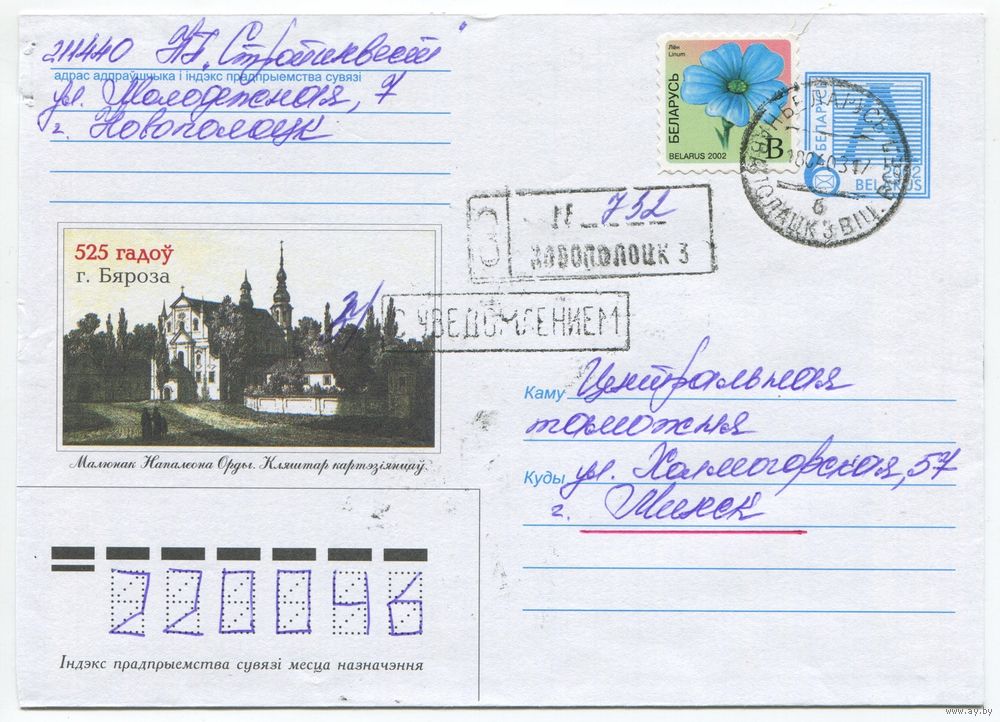 211440 НП „Стройинвест"
адрас адпраўшчыка і індэкс прадпрыемства сувязі
ул. Молодежная, 7
г. Новополоцк
Лён
Linum
БЕЛАРУСЬ
BELARUS 2002
В
БЕЛАРУСЬ
A
2002
BELARUS
180603 17
б
732
НОВОПОЛОЦК 3
С УВЕДОМЛЕНИЕМ
525 гадоў
г. Бяроза
Малюнак Напалеона Орды. Кляштар картэзіянцаў.
Каму Центральная
таможня
Куды ул. Холмогорская, 57
г. Минск
220046
Індэкс прадпрыемства сувязі месца назначэння
www.ay.by